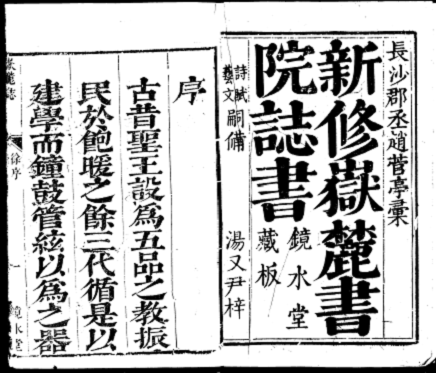 長沙郡丞趙菅亭彙
新修嶽麓書
院誌書
鏡水堂
藏板
詩賦
藝文
嗣備
湯又尹梓
序
古昔聖王設為五品之教振
民於飽暖之餘三代循是以
建學而鐘鼓管絃以為之器
徐序
一
鏡水堂